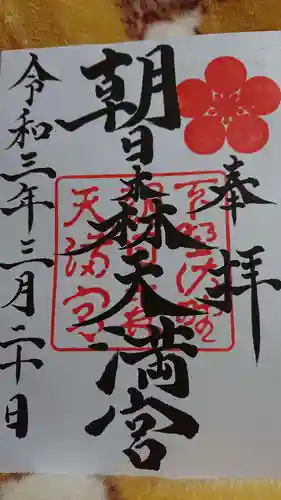 奉拝
朝日森天満宮
令和三年三月二十日
天満宮